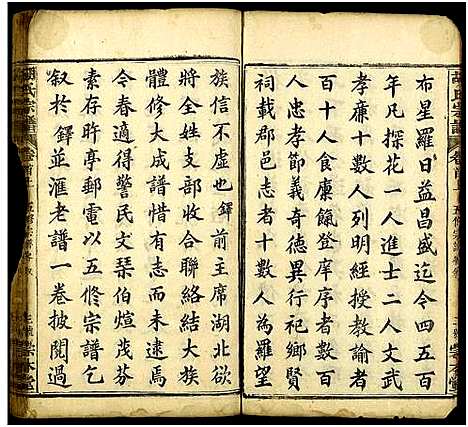 布星羅日益昌盛迄今四五百
年凡探花一人進士二人文武
孝廉十數人列明經授教諭者
百十人餘膠庠茂才者數百
人其節義奇德異行祀鄉賢
祠載郡邑志者十數人為羅望
族信不虛也鐸前主席湖北欲
將全姓支部收合聯絡結大族
體修大成譜惜有志而未逮焉
令春適得警民文琹伯煊茂芬
素存盼亭郵電以五修宗譜乞
叙於鐸並滙老譜一卷披閱過
胡氏宗譜
卷首上
五修宗譜